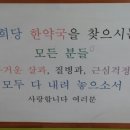 희당 한약국을 찾으시는
모든 분들
거운 삶과, 질병과, 근심걱정
모두 다 내려 놓으소서
사랑합니다 여러분